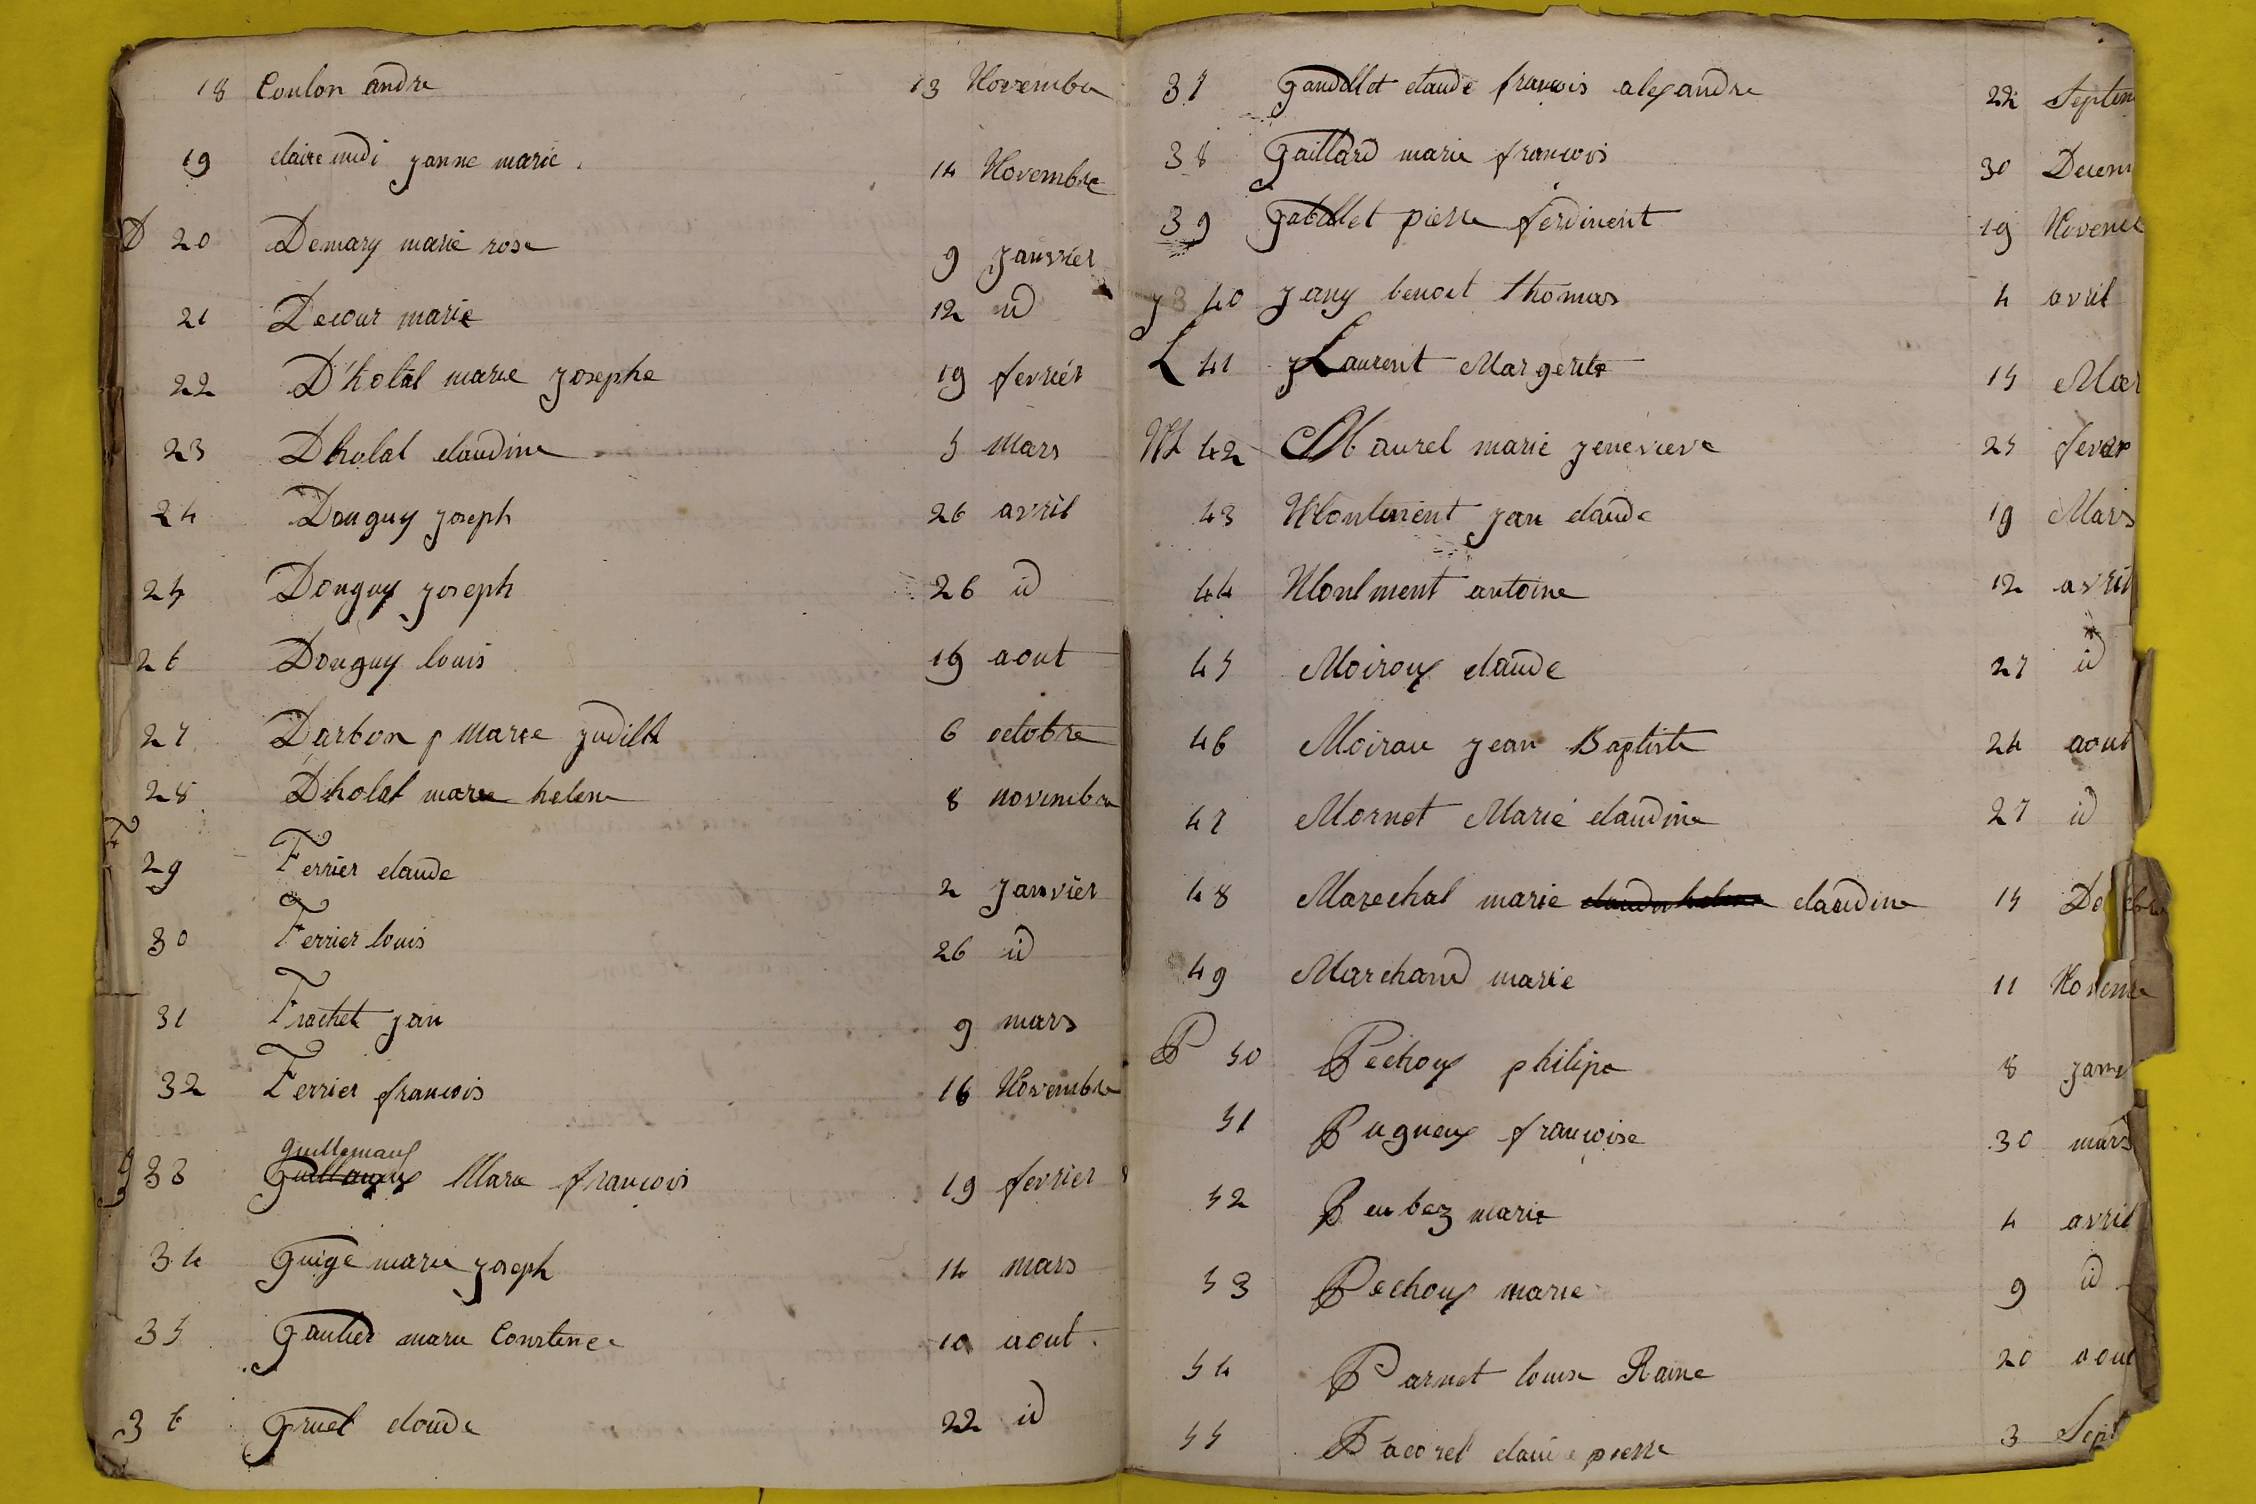 18 Coulon andre 13 Novembre
19 claire midi janne marie 14 Novembre
D 20 Demary marie rose 9 janvier
21 Decour marie 12 id
22 D'holal marie josephe 19 fevrier
23 Dholal claudine 5 mars
24 Douguy joseph 26 avril
25 Douguy joseph 26 id
26 Douguy louis 19 aout
27 Darbon marie judilt 6 octobre
28 Dholal marie helene 8 novembre
F
29 Ferrier claude 2 janvier
30 Ferrier louis 26 id
31 Frachet jan 9 mars
32 Ferrier francois 16 Novembre
guillemauf
g 33 Marie francois 19 fevrier
34 guige marie joseph 14 mars
35 gautier marie Constence 10 aout
36 gruel claude 22 id
37 gaudillet claude francois alexandre 22 Septem
38 gaillard marie francois 30 Decem
39 gabillet pierre ferdinent 19 Novemb
j 40 jany benoet thomas 4 avril
L 41 Laurent Margerite 15 Mar
M 42 Maurel marie jenevieve 25 fevr
43 Montment jan claude 19 Mars
44 Montment antoine 12 avril
45 Moiroux claude 27 id
46 Moirau jean Baptiste 24 aout
47 Mornet Marie claudine 27 id
48 Marechal marie claudine 15
49 Marchand marie 11 Novem
P 50 Pechoux philipe 8 janv
51 Pugneux francoise 30 mars
52 Peubez marie 4 avril
53 Pechoux marie 9 id
54 Parnet louise Raine 20 aout
55 Pacorel claude pierre 3 Sept